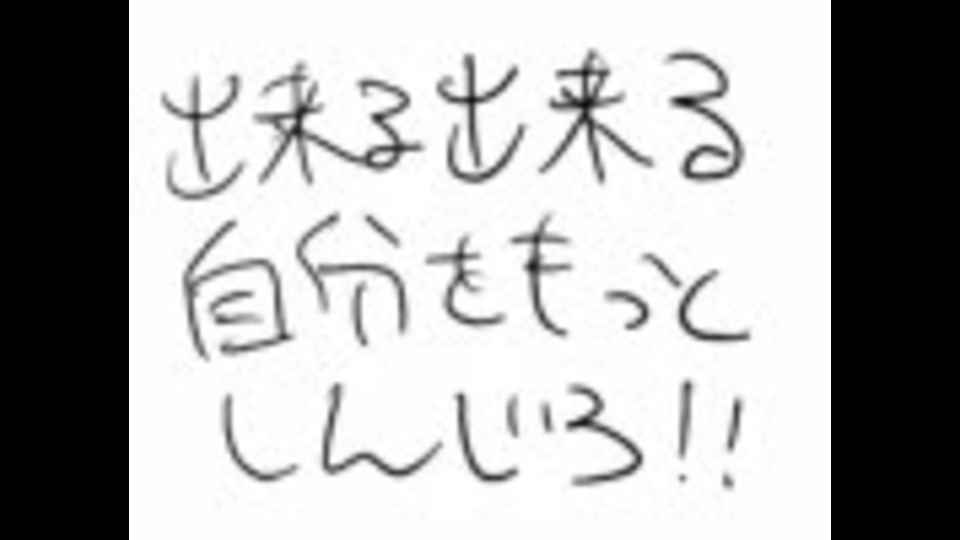 出来る出来る
自分をもっと
しんじろ!!